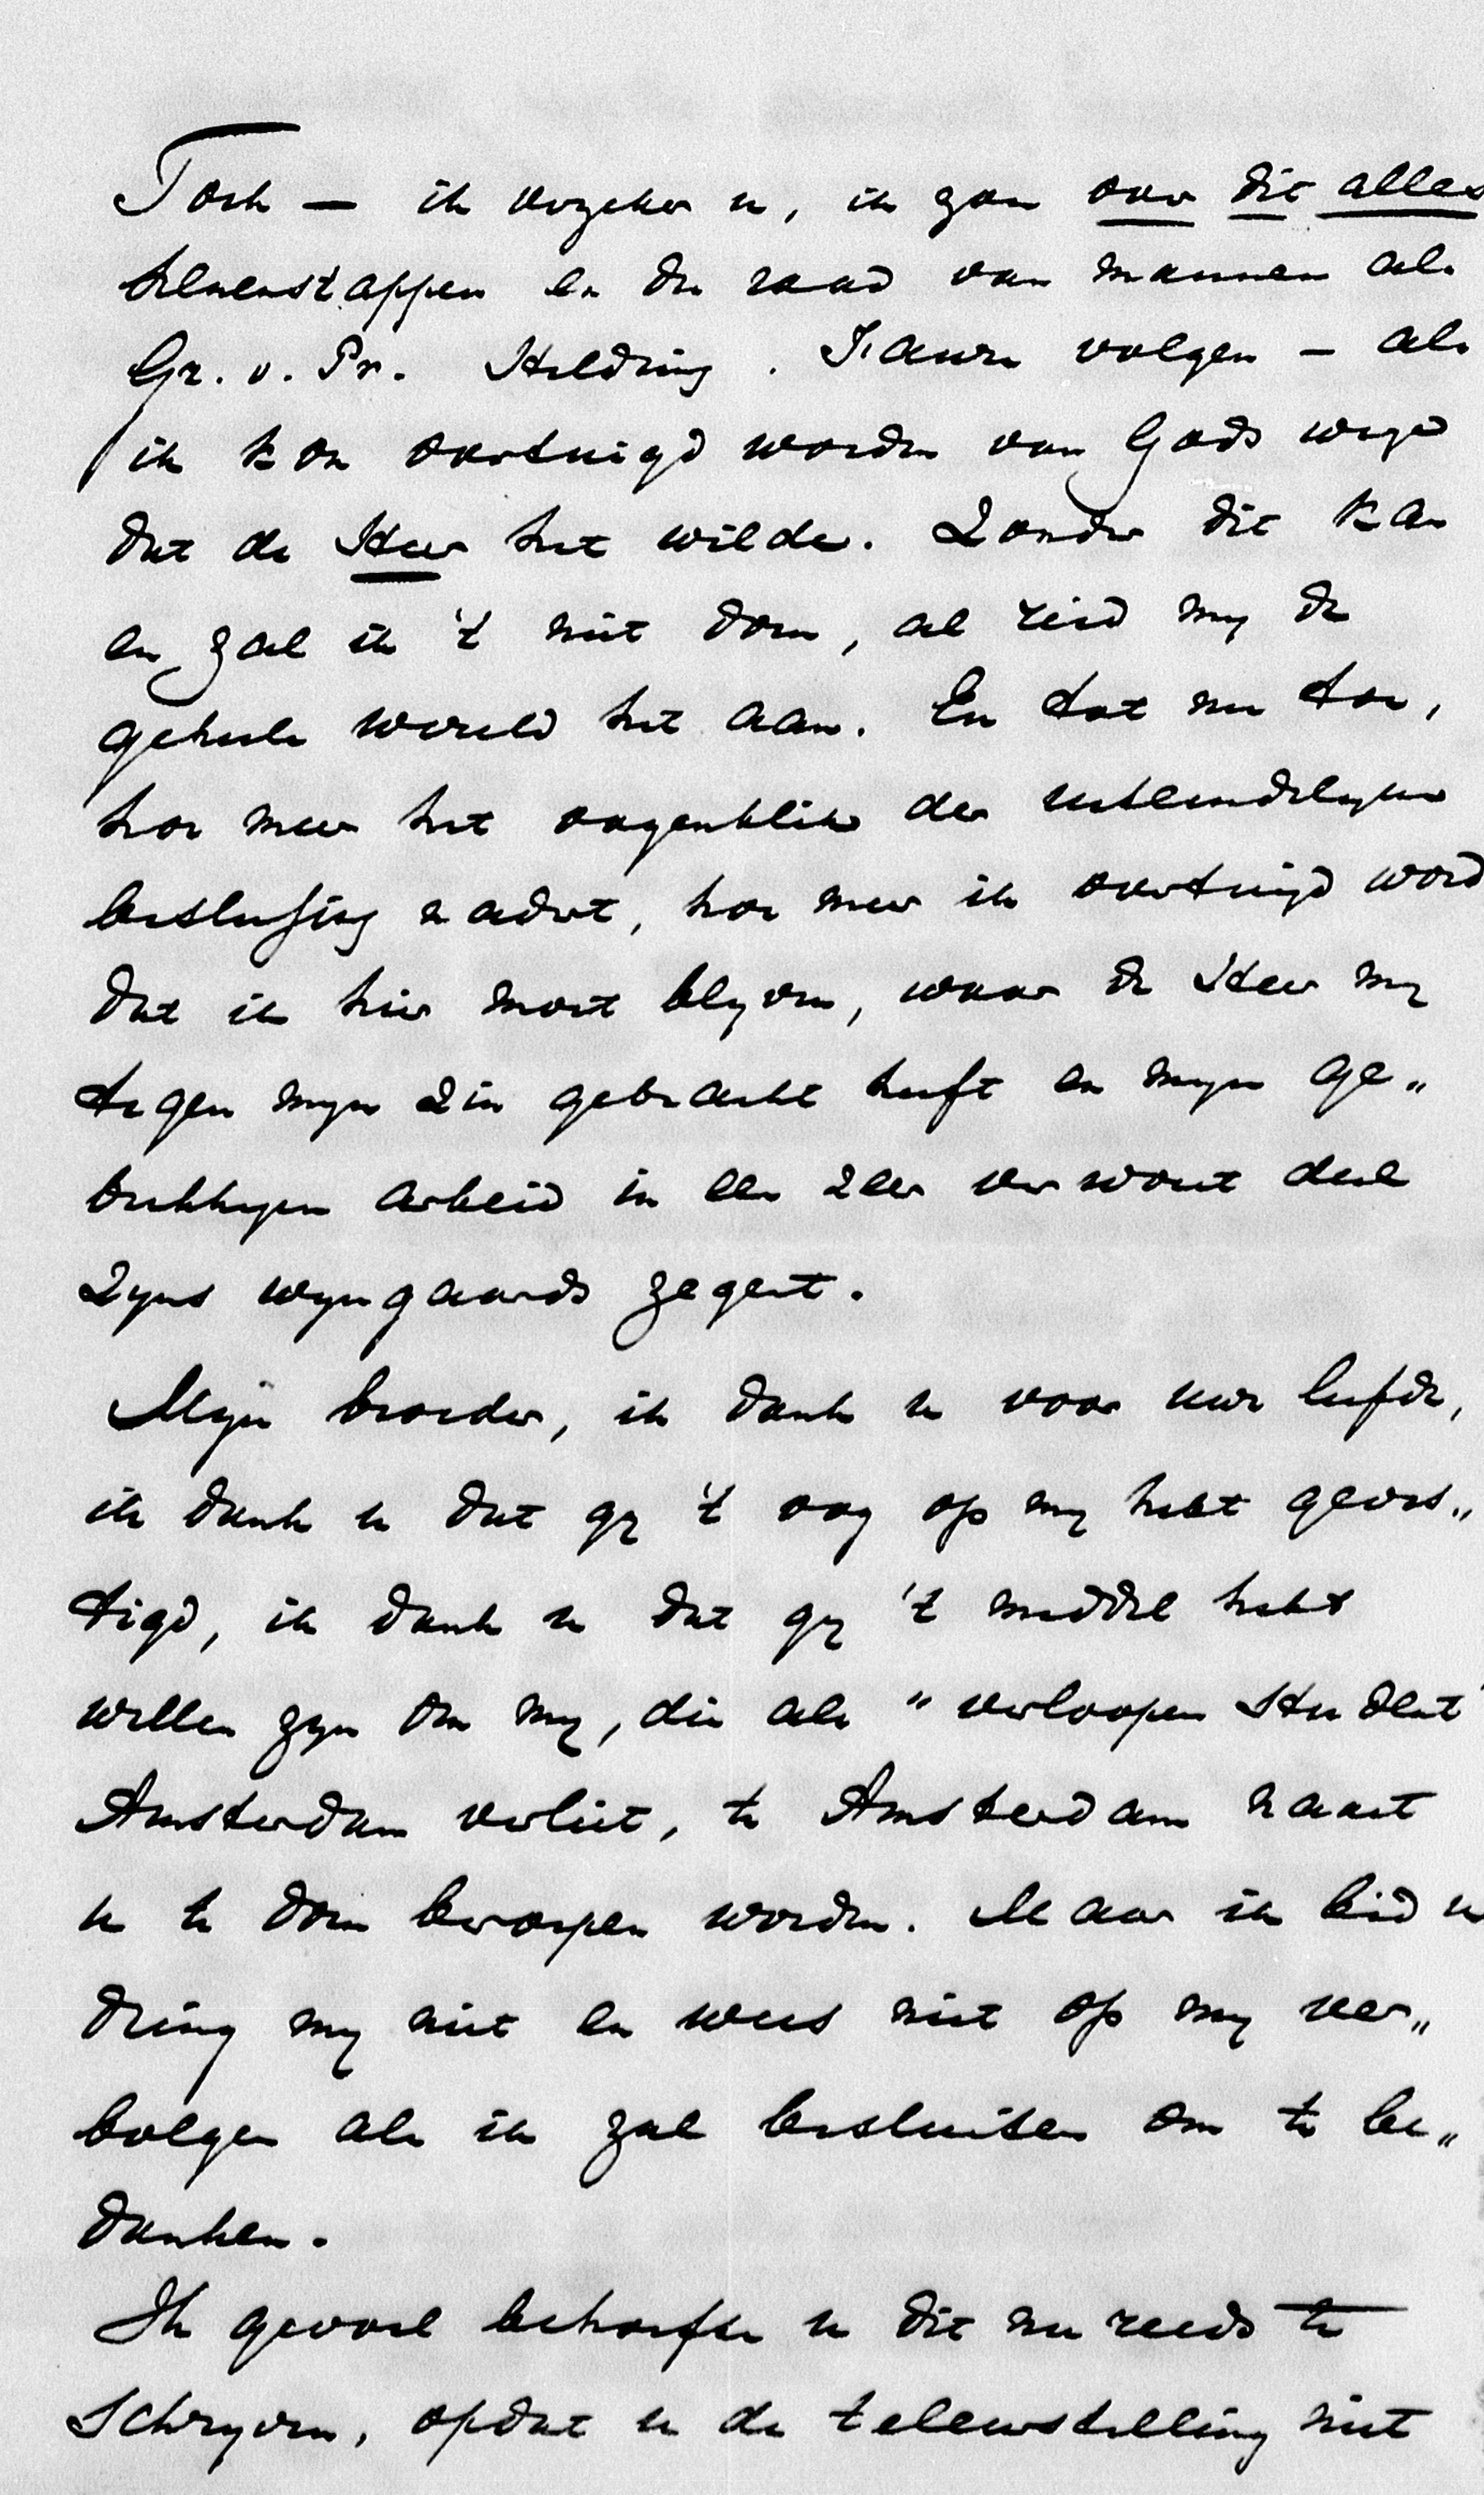 Toch — ik verzeker u, ik zou over dit alles
heenenstappen en den raad van mannen als
Gr. v. Pr. Heldring. volgen — als
ik kon overtuigd worden van Gods wege
dat de Heer het wilde. Zonder dit kan
en zal ik 't niet doen, al ried my de
geheele wereld het aan. En tot nu toe,
hoe meer het oogenblik der uiteindelyke
beslissing nadert, hoe meer ik overtuigd word
dat ik hier moet blyven, waar de Heer my
tegen myn zin gebracht heeft en myn ge„
brekkigen arbeid in een zeer verwoest deel
Zyns wyngaards zegent.
Myn broeder, ik dank u voor uwe liefde,
ik dank u dat gy 't oog op my hebt geves„
tigd, ik dank u dat gy 't middel hebt
willen zyn om my, die als "verloopen student"
Amsterdam verliet, te Amsterdam naast
u te doen beroepen worden. Maar ik bid u
dring my niet en wees niet op my ver„
bolgen als ik zal besluiten om te be„
danken.
Ik gevoel behoefte u dit nu reeds te
schryven, opdat u de teleurstelling niet